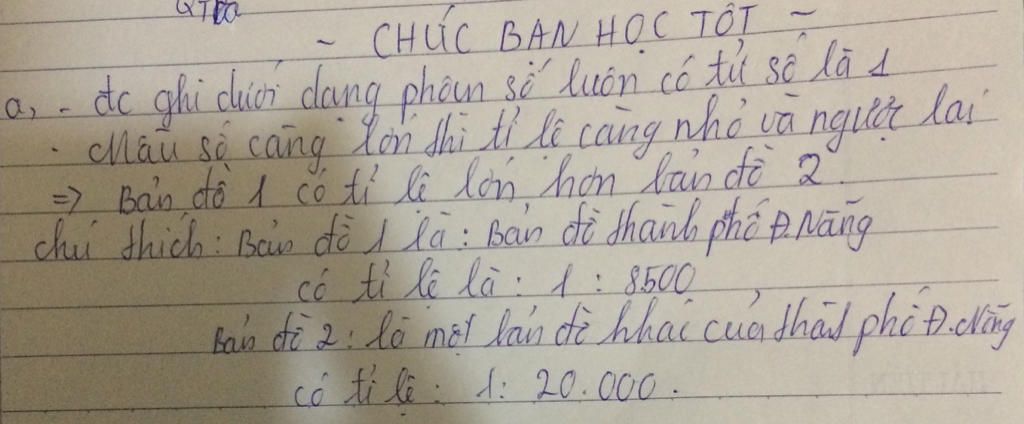 - CHÚC BẠN HỌC TỐT -
a, - đc ghi dưới dạng phân số luôn có tử số là 1
. Mẫu số càng lớn thì tỉ lệ càng nhỏ và ngược lại
=> Bản đồ 1 có tỉ lệ lớn hơn bản đồ 2.
chú thích: Bản đồ 1 là: Bản đồ thành phố Đ.Nẵng
có tỉ lệ là: 1 : 8500
Bản đồ 2: là một bản đồ khác của thành phố Đ.Nẵng
có tỉ lệ: 1: 20.000.